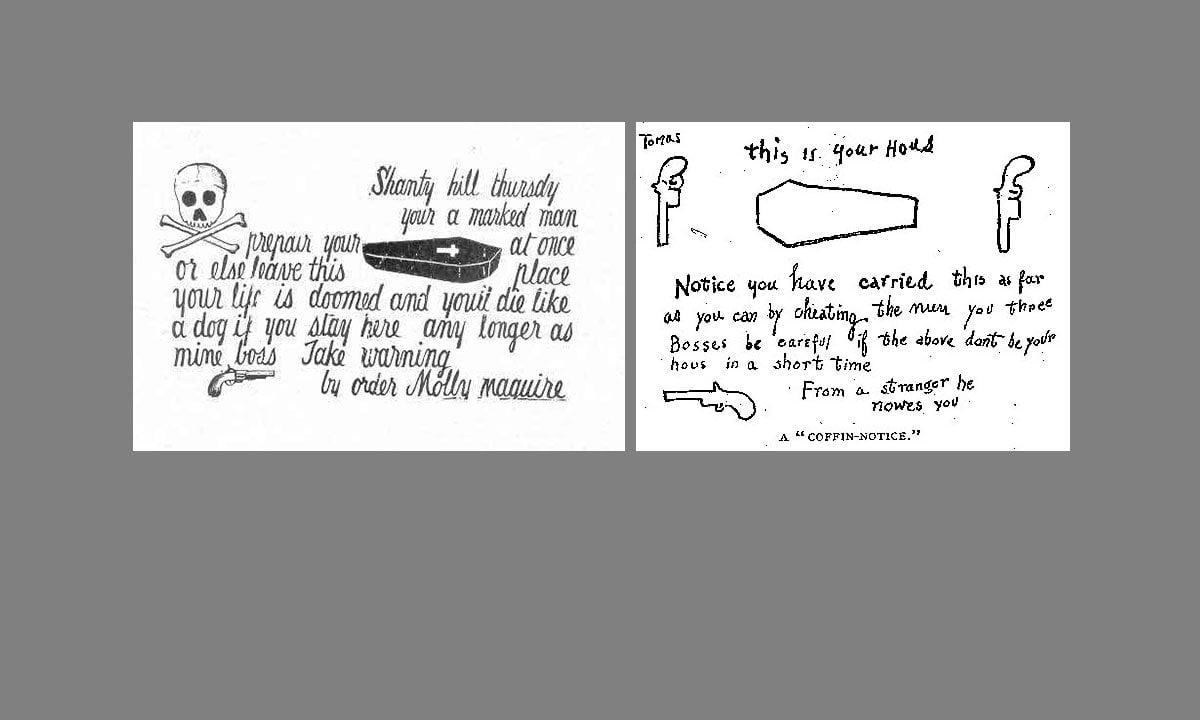 Shanty hill thursdy
your a marked man
prepair your at once
or else leave this place
your life is doomed and youil die like
a dog if you stay here any longer as
mine boss Take warning
by order Molly maguire
Tomas
this is your Hous
Notice you have carried this as far
as you can by cheating the men you three
Bosses be careful if the above dont be your
hous in a short time
From a stranger he
nowes you
A "COFFIN-NOTICE."